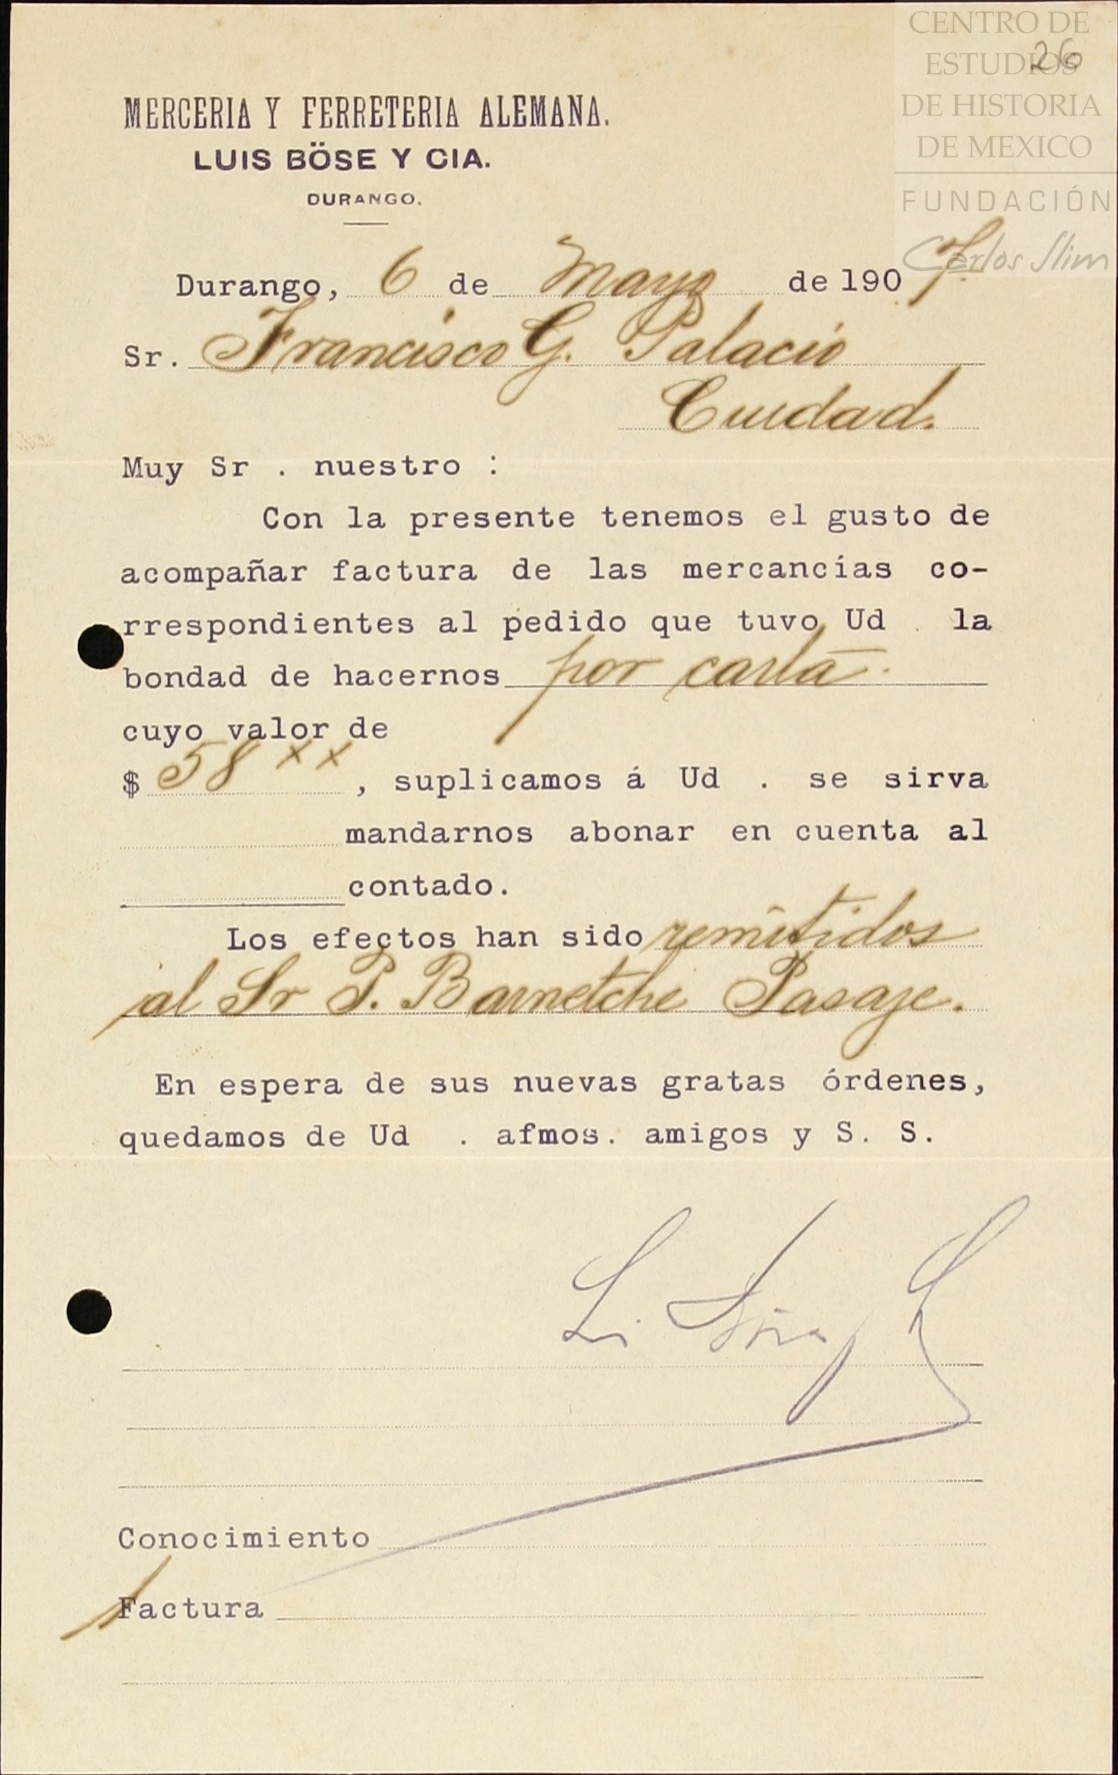 CENTRO DE
ESTUDIOS
DE HISTORIA
DE MEXICO
FUNDACIÓN
Carlos Slim
26
MERCERIA Y FERRETERIA ALEMANA.
LUIS BÖSE Y CIA.
DURANGO.
Durango, 6 de Mayo de 1907.
Sr. Francisco G. Palacio
Ciudad.
Muy Sr . nuestro :
Con la presente tenemos el gusto de
acompañar factura de las mercancías co-
rrespondientes al pedido que tuvo Ud . la
bondad de hacernos por carta.
cuyo valor de
$ 58 xx , suplicamos á Ud . se sirva
mandarnos abonar en cuenta al
contado.
Los efectos han sido remitidos
al Sr P. Barnetche Pasaje.
En espera de sus nuevas gratas órdenes,
quedamos de Ud . afmos. amigos y S. S.
Conocimiento
1 Factura